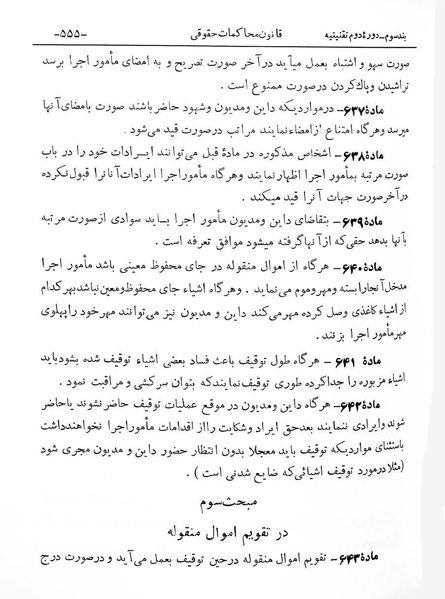 بند سوم ـ دورهٔ دوم تقنینیه قانون محاکمات حقوقی ـ۵۵۵ـ
صورت سهو و اشتباه بعمل میآید در آخر صورت تصریح و به امضای مأمور اجرا برسد
تراشیدن و پاك کردن در صورت ممنوع است .
مادهٔ ۶۳۷ـ در مواردیکه داین و مدیون و شهود حاضر باشند صورت بامضای آنها
میرسد و هرگاه امتناع از امضاء نمایند مراتب در صورت قید می‌شود .
مادهٔ ۶۳۸ـ اشخاص مذکوره در مادهٔ قبل می‌توانند ایرادات خود را در باب
صورت مرتبه بمأمور اجرا اظهار نمایند و هرگاه مأمور اجرا ایرادات آنانرا قبول نکرده
در آخر صورت جهات آنرا قید میکند .
مادهٔ ۶۳۹ـ بتقاضای داین و مدیون مأمور اجرا باید سوادی از صورت مرتبه
بآنها بدهد حقی که از آنها گرفته میشود موافق تعرفه است .
مادهٔ ۶۴۰ـ هرگاه از اموال منقوله در جای محفوظ معینی باشد مأمور اجرا
مدخل آنجا را بسته و مهر و موم می نماید . و هرگاه اشیاء جای محفوظ و معین نباشد بهر کدام
از اشیاء کاغذی وصل کرده مهر می‌کند داین و مدیون نیز می توانند مهر خود را پهلوی
مهر مأمور اجرا بزنند .
مادهٔ ۶۴۱ ـ هرگاه طول توقیف باعث فساد بعضی اشیاء توقیف شده بشود باید
اشیاء مزبوره را جدا کرده طوری توقیف نمایند که بتوان سرکشی و مراقبت نمود .
مادهٔ ۶۴۲ـ هرگاه داین و مدیون در موقع عملیات توقیف حاضر نشوند یا حاضر
شوند و ایرادی ننمایند بعد حق ایراد و شکایت را از اقدامات مأمور اجرا نخواهند داشت
باستثنای مواردیکه توقیف باید معجلا بدون انتظار حضور داین و مدیون مجری شود
(مثلا در مورد توقیف اشیائی که ضایع شدنی است ) .
مبحث سوم
در تقویم اموال منقوله
مادهٔ ۶۴۳ـ تقویم اموال منقوله در حین توقیف بعمل می‌آید و در صورت درج